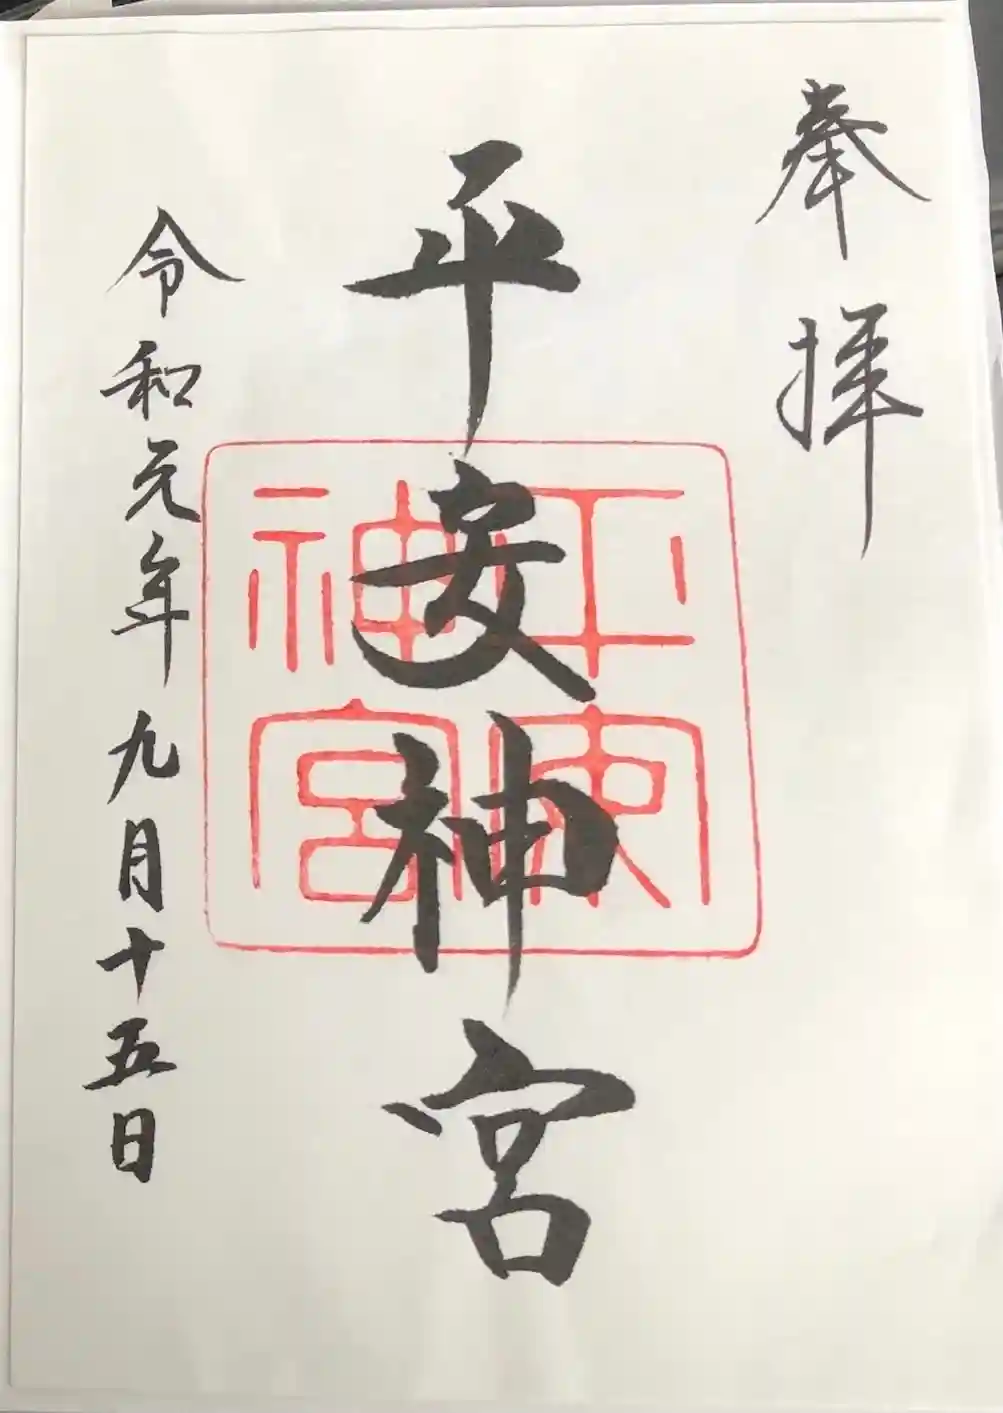 奉拝
平安神宮
平安神宮
令和元年九月十五日